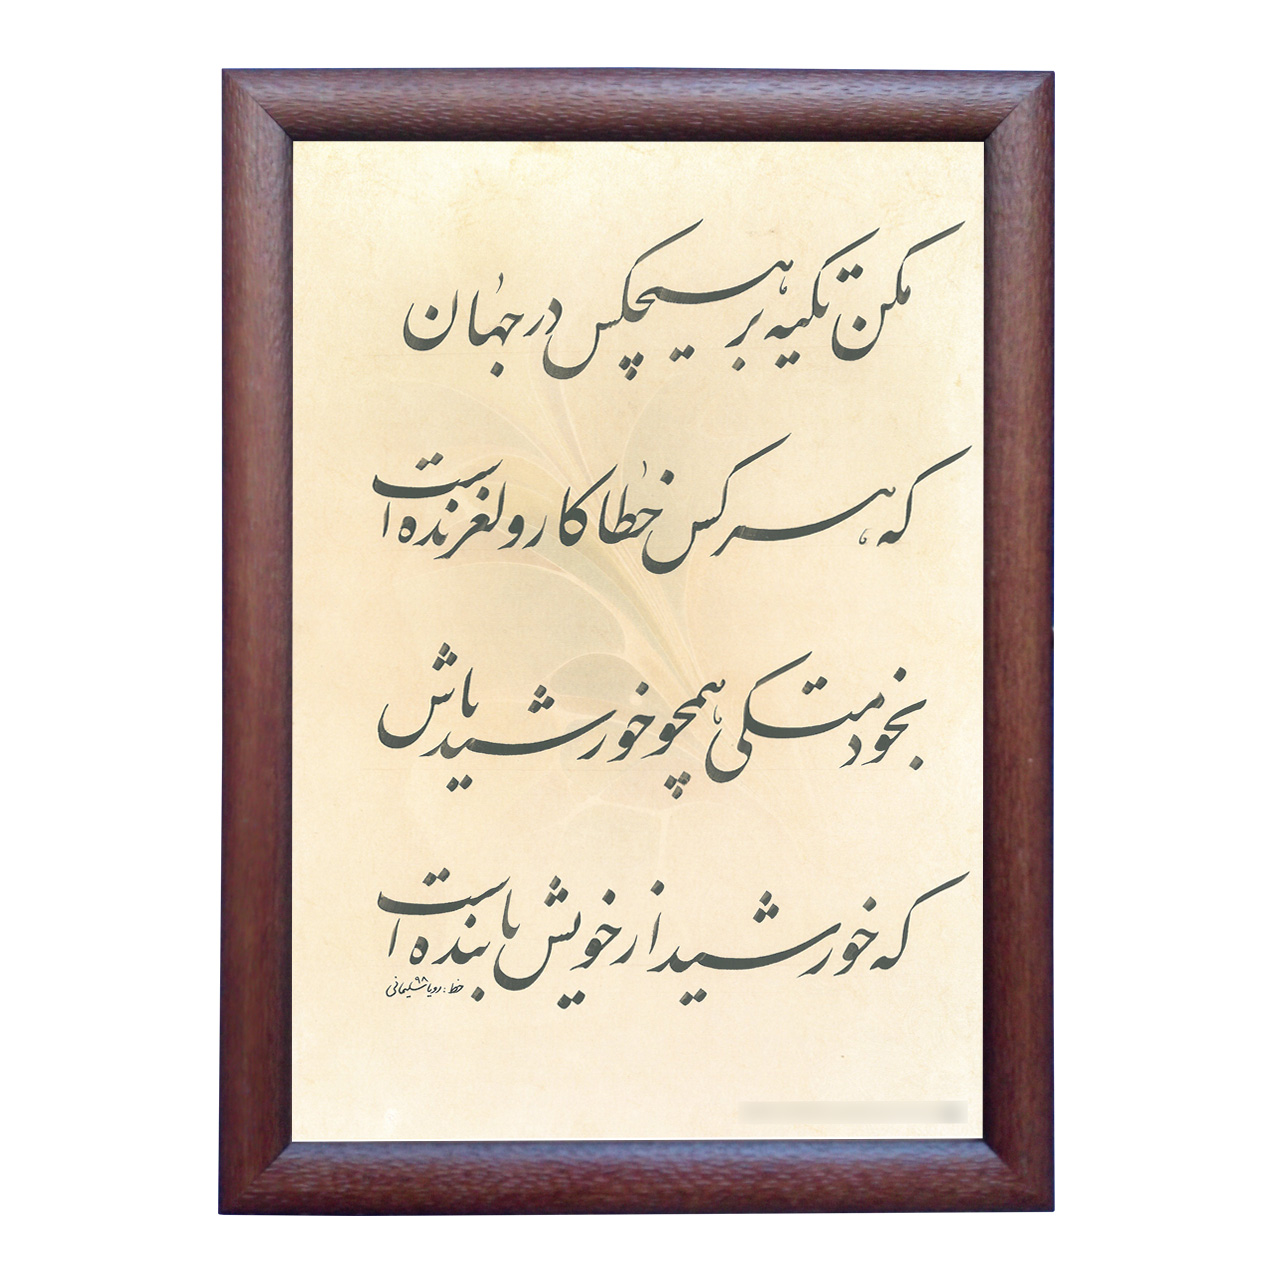 مکن تکیه بر هیچکس در جهان
که هر کس خطا کار و لغزنده است
بخود متکی همچو خورشید باش
که خورشید از خویش تابنده است
خط : رویا سلیمانی ۹۸